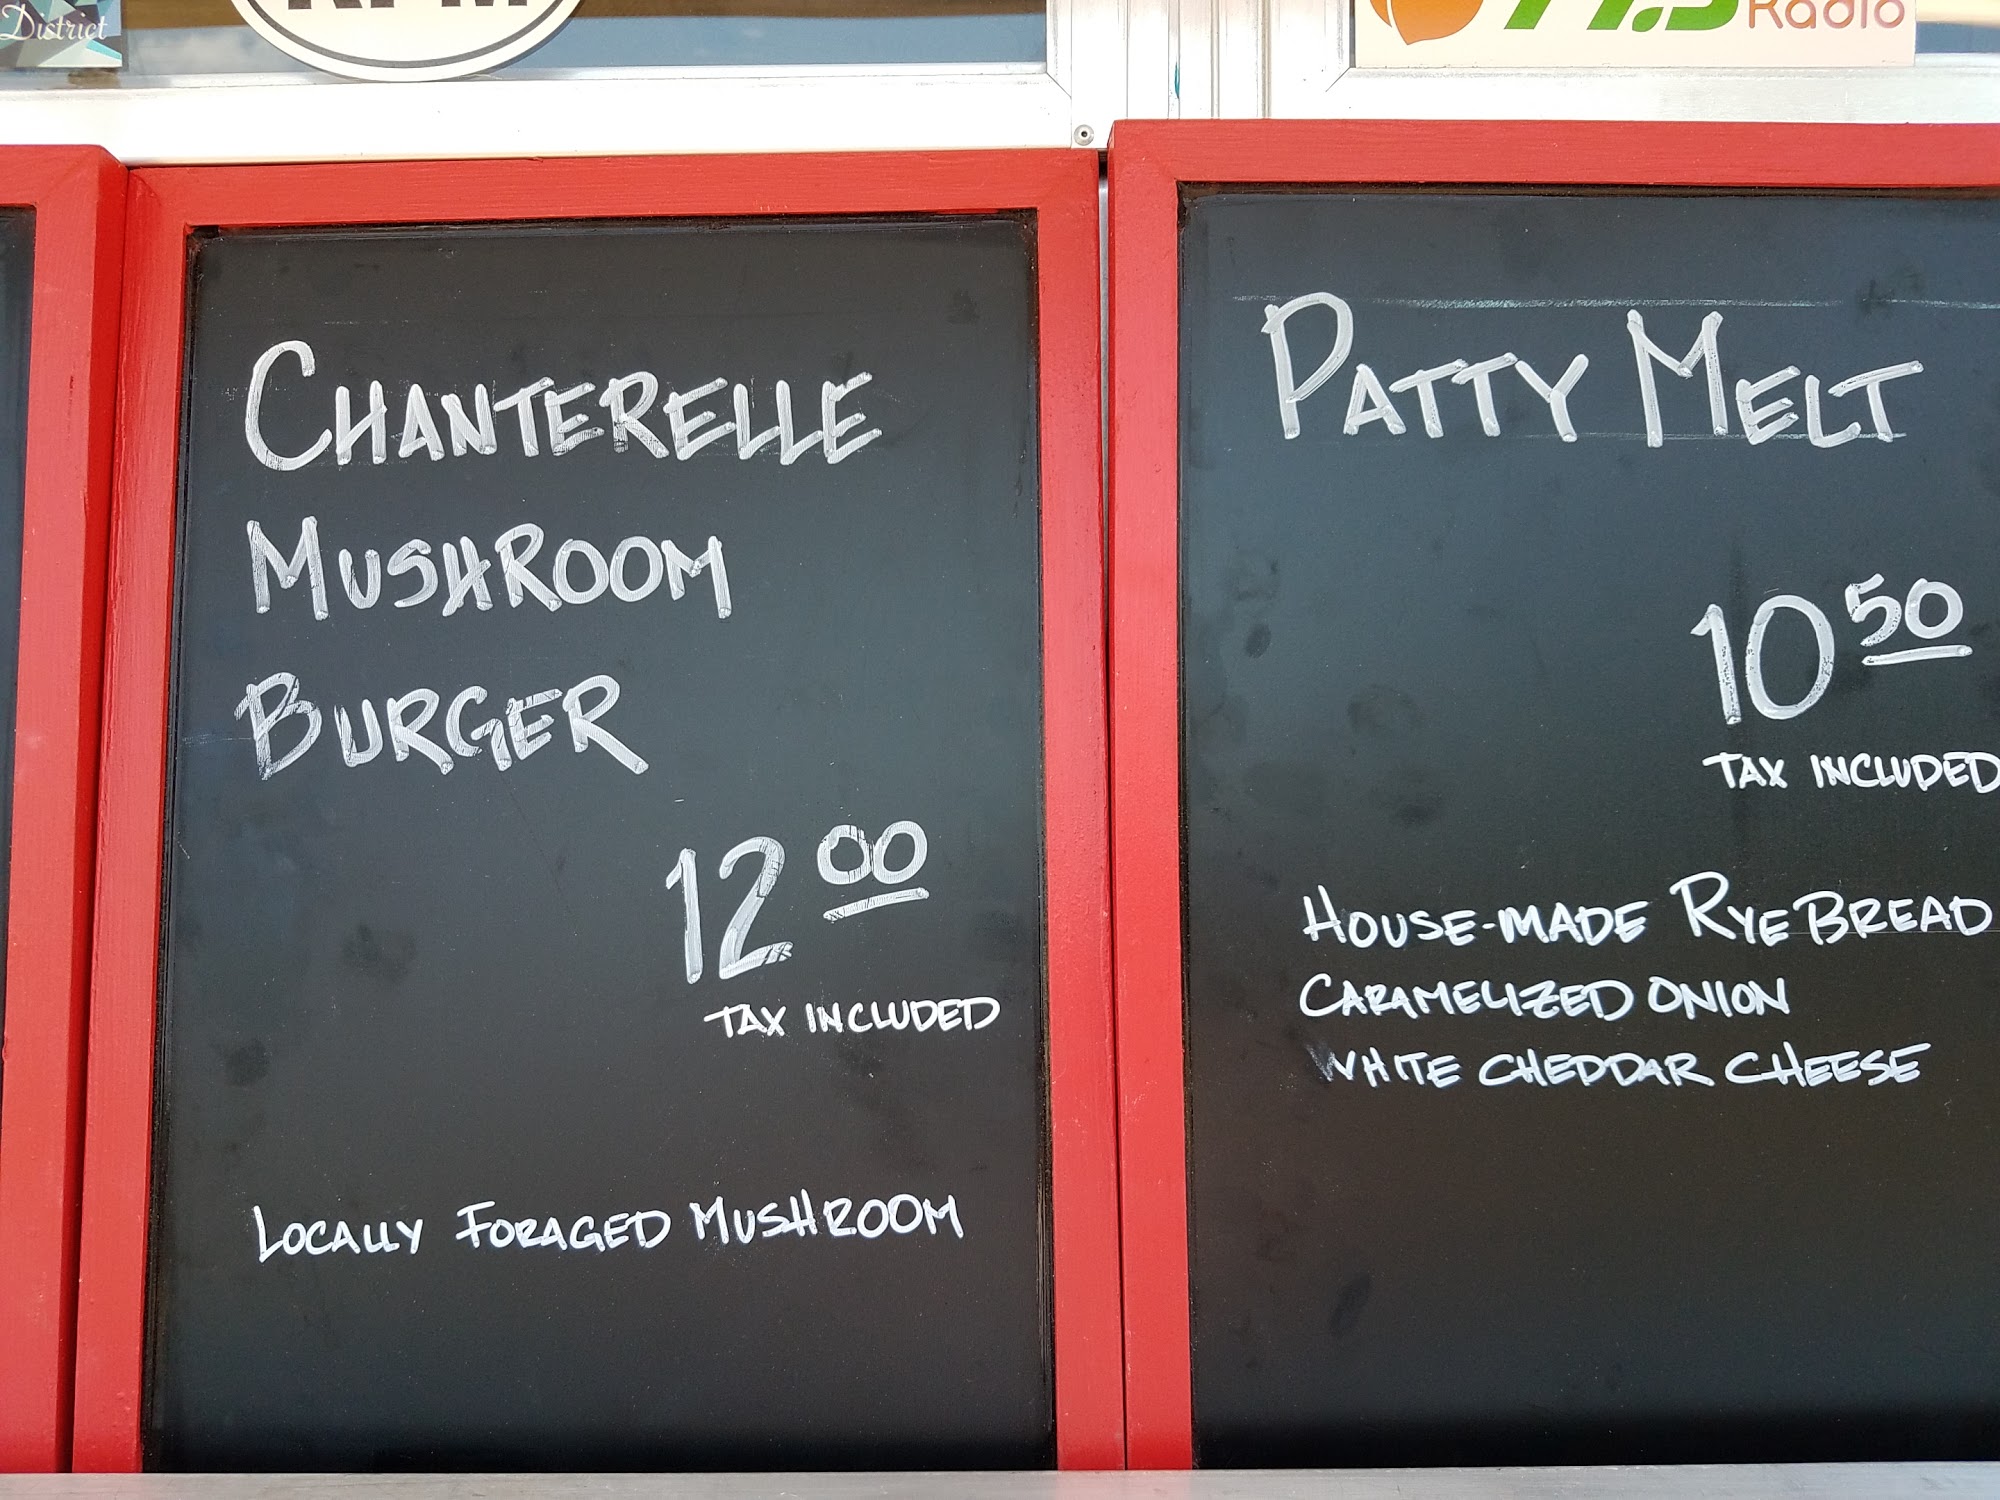 District
RPM
Radio
CHANTERELLE
MUSHROOM
BURGER
12 00
TAX INCLUDED
LOCALLY FORAGED MUSHROOM
PATTY MELT
10 50
TAX INCLUDED
HOUSE-MADE RYE BREAD
CARAMELIZED ONION
WHITE CHEDDAR CHEESE